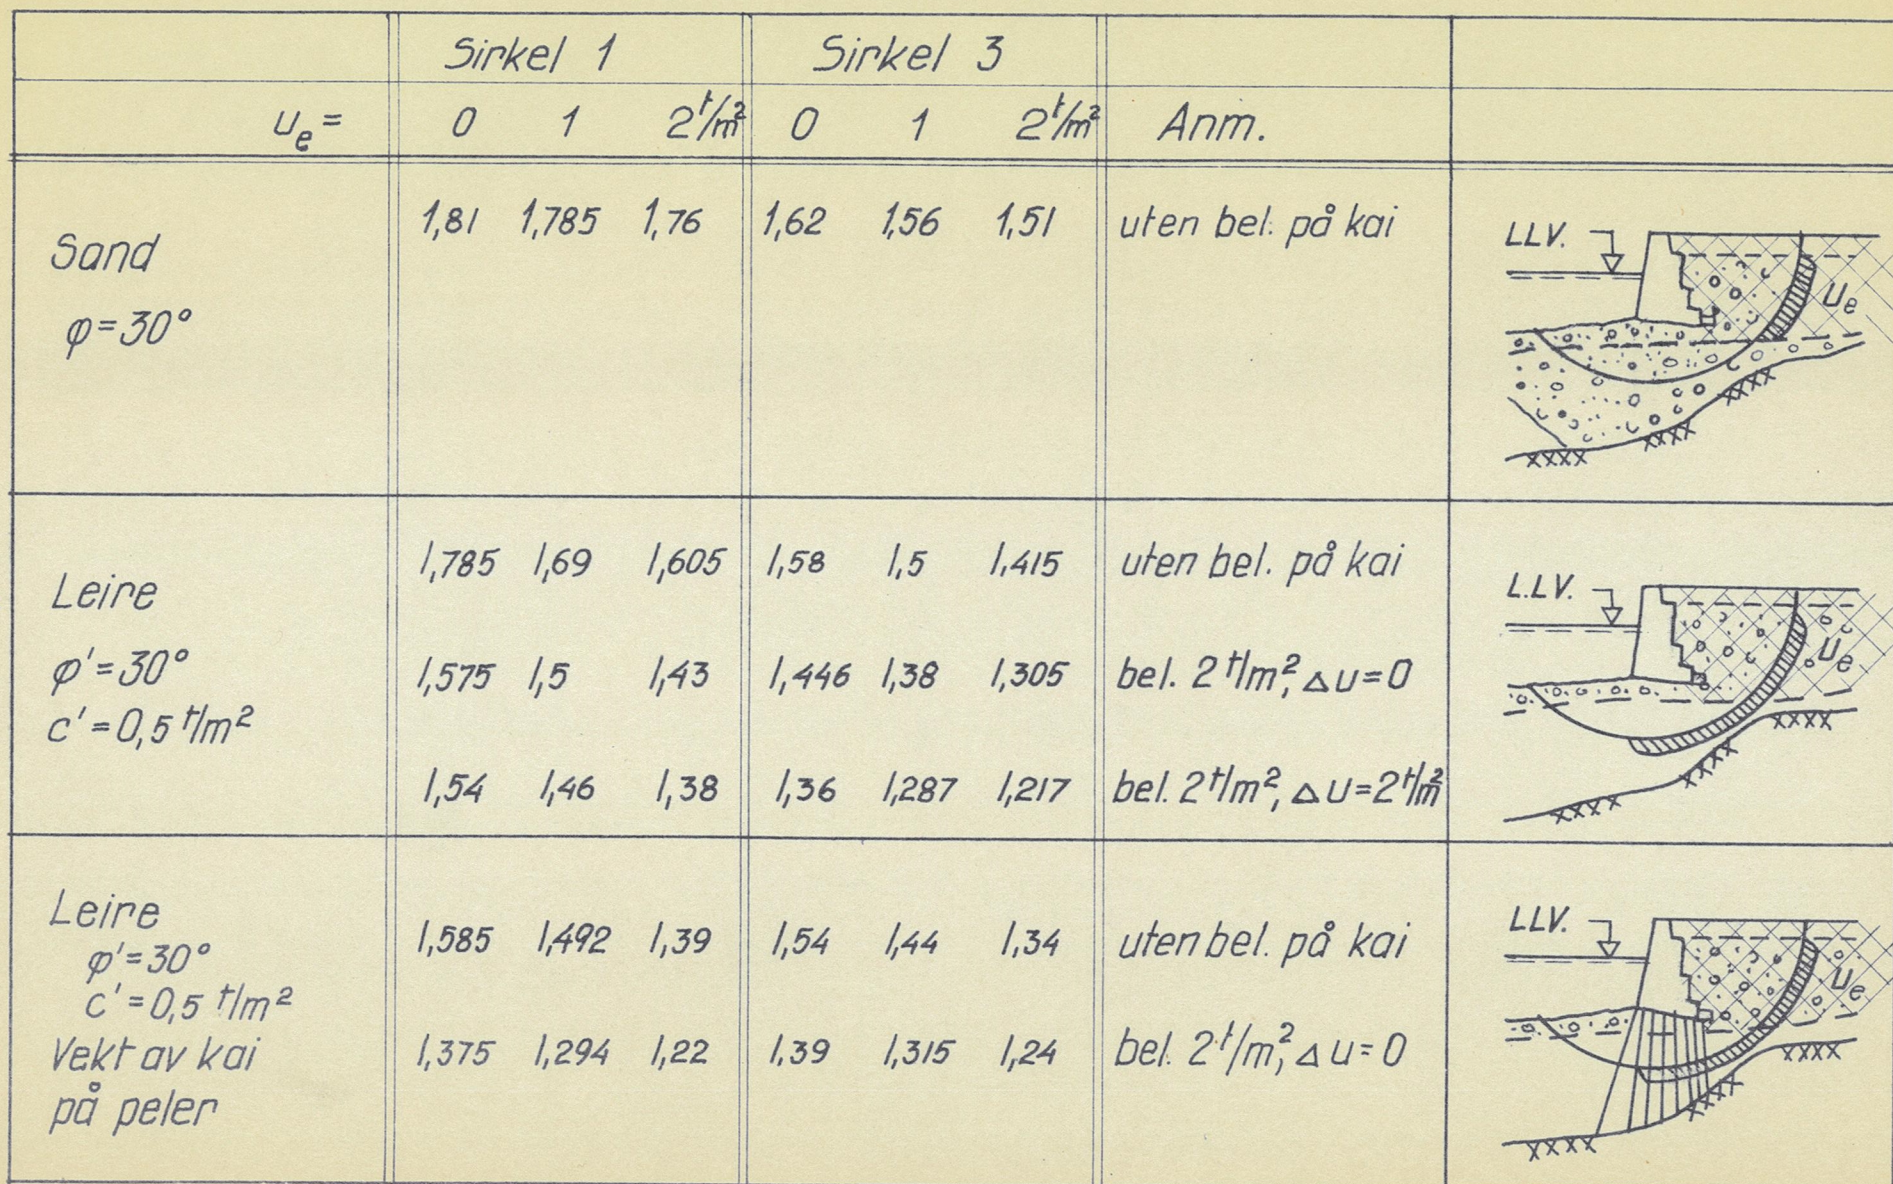 Sirkel 1 Sirkel 3
u_e = 0 1 2 t/m² 0 1 2 t/m² Anm.
Sand
φ=30°
1,81 1,785 1,76 1,62 1,56 1,51 uten bel. på kai
LLV.
u_e
Leire
φ'=30°
c'=0,5 t/m²
1,785 1,69 1,605 1,58 1,5 1,415 uten bel. på kai
1,575 1,5 1,43 1,446 1,38 1,305 bel. 2 t/m², Δu=0
1,54 1,46 1,38 1,36 1,287 1,217 bel. 2 t/m², Δu=2 t/m²
L.LV.
u_e
Leire
φ'=30°
c'=0,5 t/m²
Vekt av kai
på peler
1,585 1,492 1,39 1,54 1,44 1,34 uten bel. på kai
1,375 1,294 1,22 1,39 1,315 1,24 bel. 2 t/m², Δu=0
LLV.
u_e